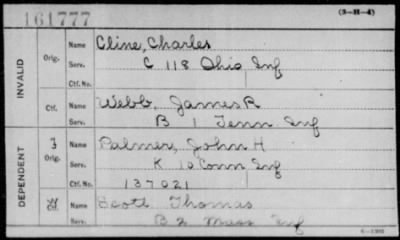 161777
(3-H-4)
INVALID
Orig.
Name Cline, Charles
Serv. C 118 Ohio Inf
Ctf. No.
Ctf.
Name Webb, James R
Serv. B 1 Tenn Inf
DEPENDENT
Orig.
Name Palmer, John H
Serv. K 10 Conn Inf
Ctf. No. 137021
W
Ctf.
Name Scott Thomas
Serv. B 2 Mass Inf